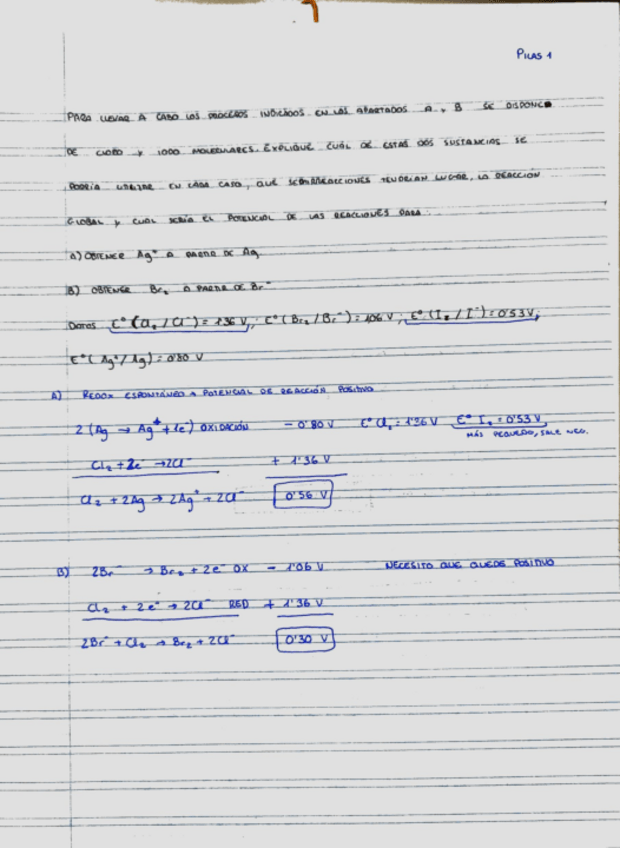 PILAS 1
PARA LLEVAR A CABO LOS PROCESOS INDICADOS EN LOS APARTADOS A y B SE DISPONE
DE CLORO y IODO MOLECULARES. EXPLIQUE CUÁL DE ESTAS DOS SUSTANCIAS SE
PODRÍA UTILIZAR EN CADA CASO, QUE SEMIRREACCIONES TENDRÍAN LUGAR, LA REACCIÓN
GLOBAL y CUAL SERÍA EL POTENCIAL DE LAS REACCIONES PARA:
A) OBTENER Ag⁺ A PARTIR DE Ag
B) OBTENER Br₂ A PARTIR DE Br⁻
DATOS E°(Cl₂/Cl⁻) = 1'36 V; E°(Br₂/Br⁻) = 1'06 V; E°(I₂/I⁻) = 0'53 V;
E°(Ag⁺/Ag) = 0'80 V
A) REDOX ESPONTÁNEO → POTENCIAL DE REACCIÓN POSITIVO
2 (Ag → Ag⁺ + 1e⁻) OXIDACIÓN - 0'80 V E° Cl₂ = 1'36 V E° I₂ = 0'53 V
MÁS PEQUEÑO, SALE NEG.
Cl₂ + 2e⁻ → 2Cl⁻ + 1'36 V
Cl₂ + 2Ag → 2Ag⁺ + 2Cl⁻ 0'56 V
B) 2Br⁻ → Br₂ + 2e⁻ OX - 1'06 V NECESITO QUE QUEDE POSITIVO
Cl₂ + 2e⁻ → 2Cl⁻ RED + 1'36 V
2Br⁻ + Cl₂ → Br₂ + 2Cl⁻ 0'30 V